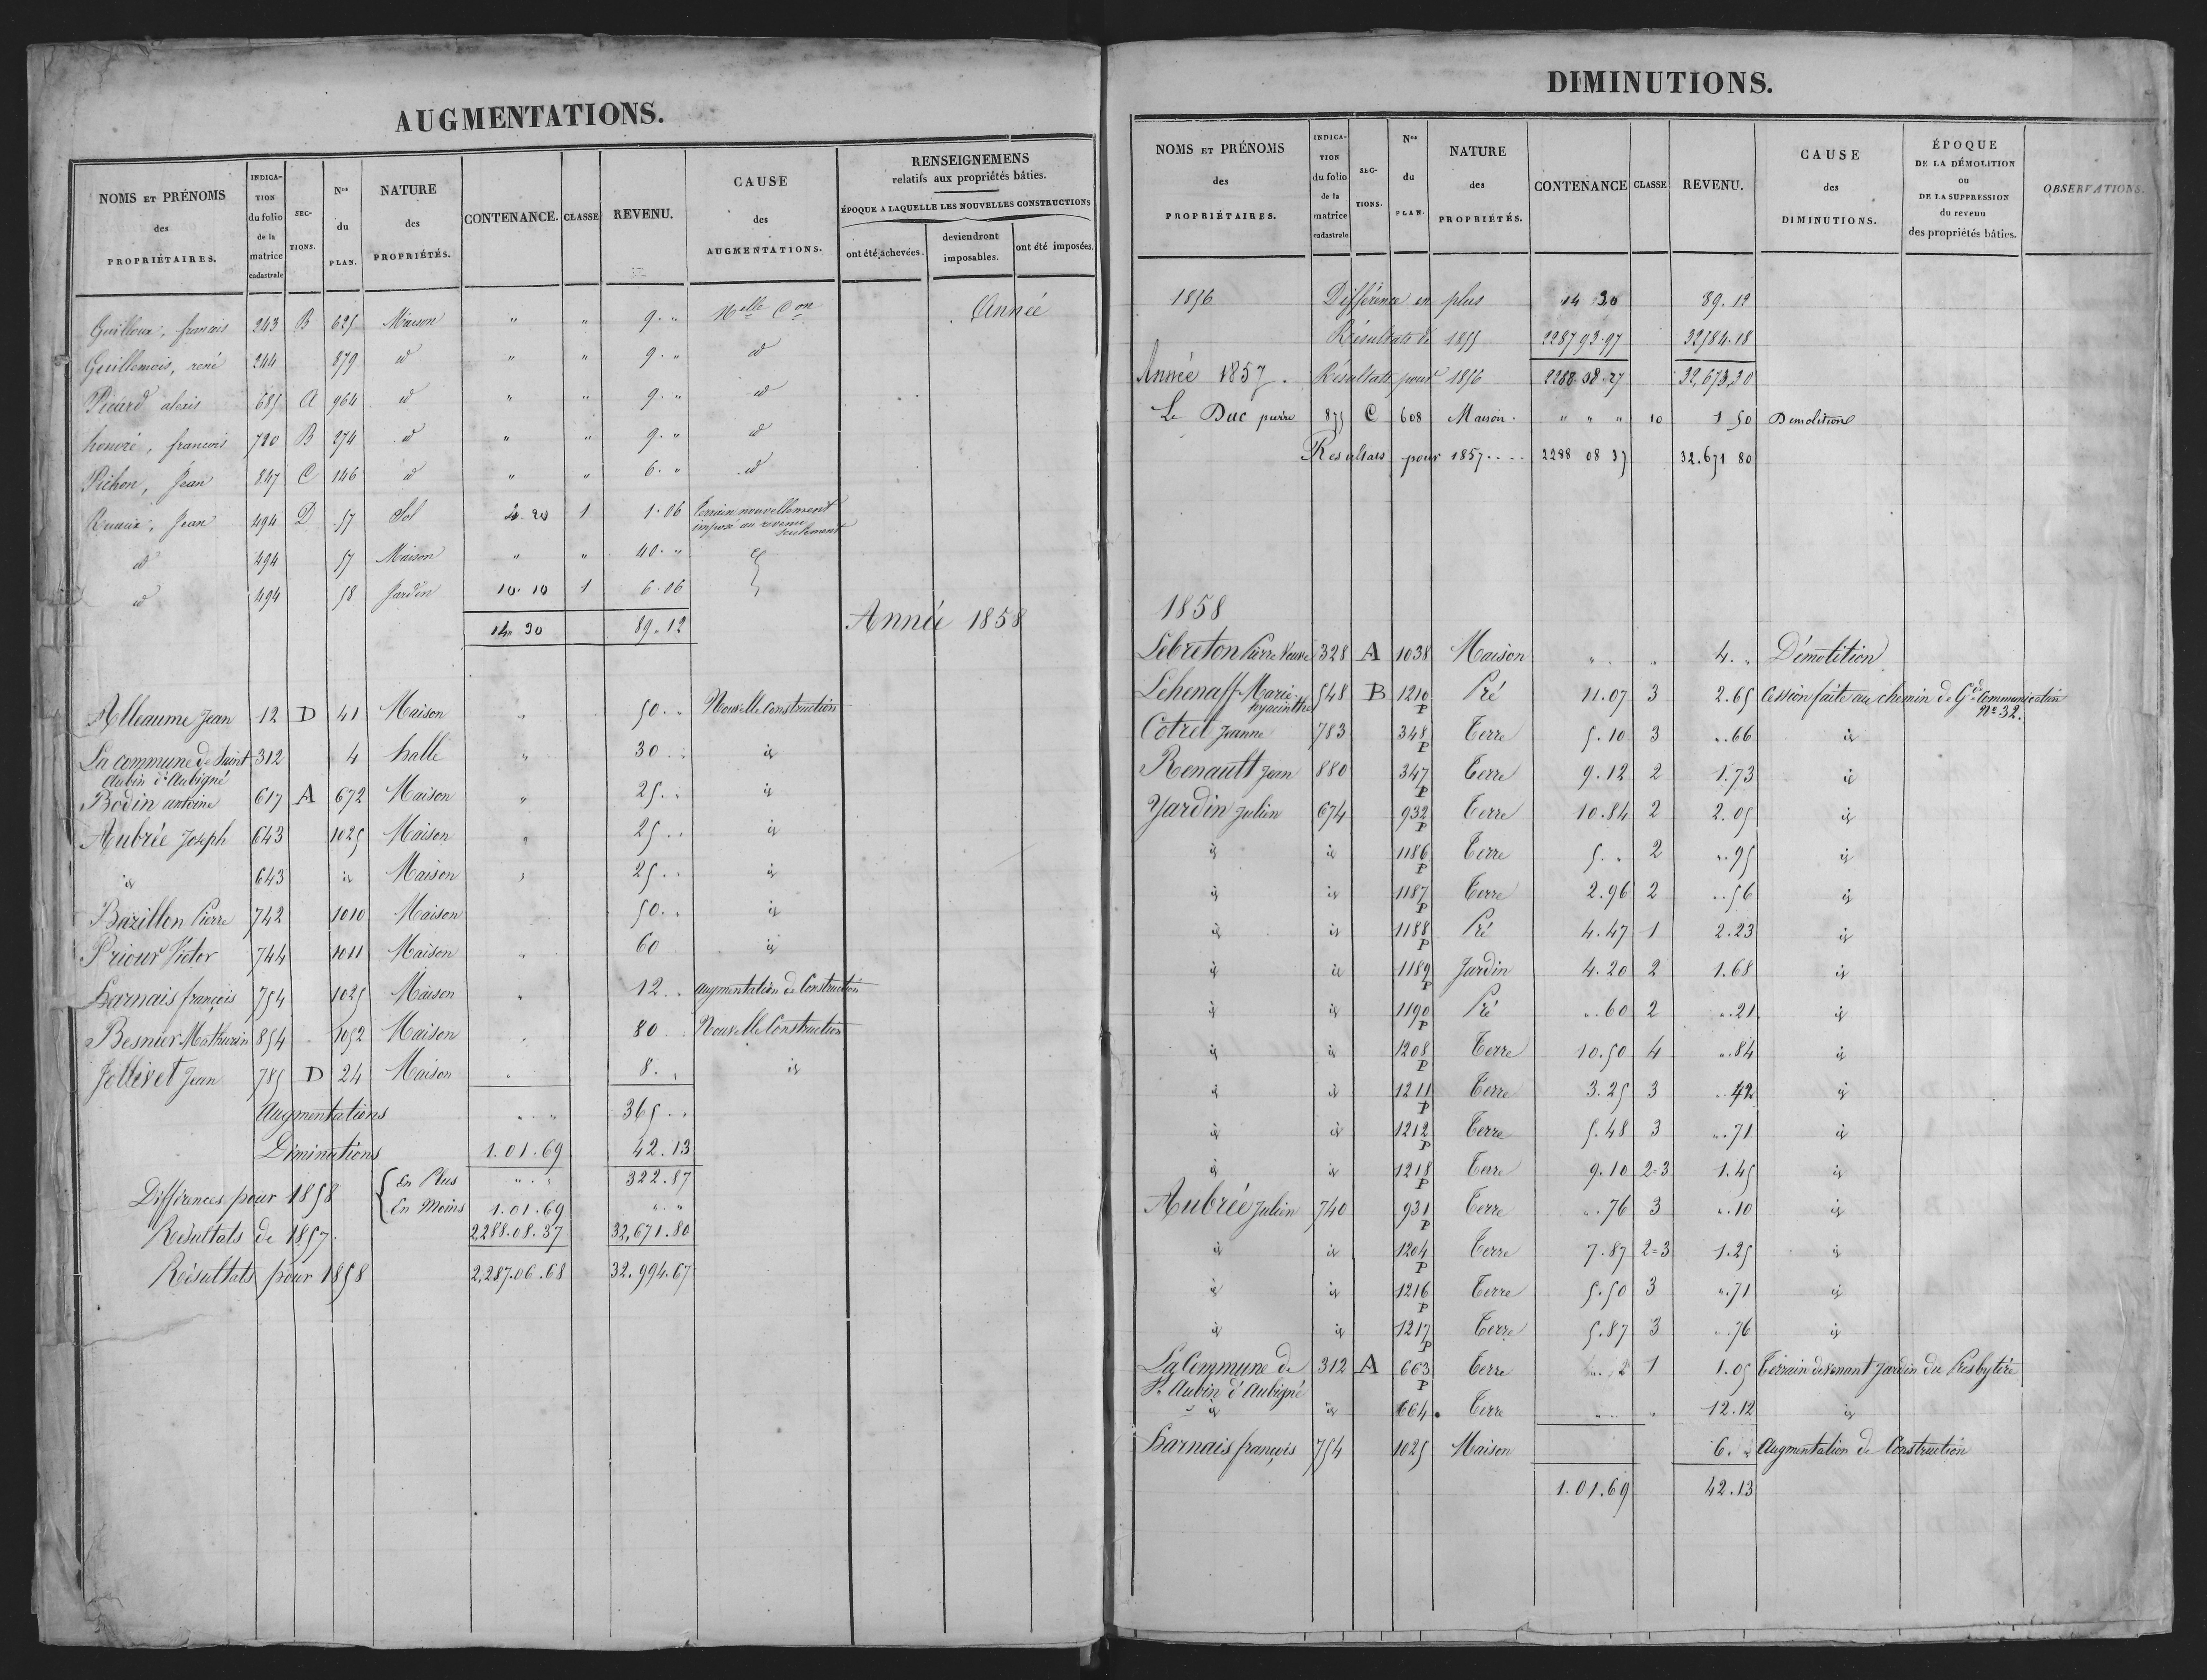 AUGMENTATIONS.
NOMS ET PRÉNOMS des PROPRIÉTAIRES. INDICATION du folio de la matrice cadastrale SECTIONS. Nos du PLAN. NATURE des PROPRIÉTÉS. CONTENANCE. CLASSE REVENU. CAUSE des AUGMENTATIONS. RENSEIGNEMENS relatifs aux propriétés bâties. ÉPOQUE A LAQUELLE LES NOUVELLES CONSTRUCTIONS ont été achevées. deviendront imposables. ont été imposées.
Guilloux, francois 243 B 625 Maison " " 9. " Nelle Con Année
Guillemois, rené 244 879 id " " 9. " id
Picard alexis 685 A 964 id " " 9. " id
honoré, francois 720 B 274 id " " 9. " id
Pichon, Jean 847 C 146 id " " 6. " id
Ruaux, Jean 494 D 57 Sol 4. 20 1 1. 06 Terrain nouvellement
imposé au revenu
seulement
id 494 57 Maison " " 40. "
id 494 58 Jardin 10. 10 1 6. 06
14. 30 89. 12
Année 1858
Alleaume Jean 12 D 41 Maison " 50. . Nouvelle Construction
La commune de Saint 312 4 halle " 30 . . id
Aubin d'Aubigné
Bodin antoine 617 A 672 Maison " 25. . id
Aubrée Joseph 643 1025 Maison " 25. . id
id 643 id Maison " 25. . id
Bazillon Pierre 742 1010 Maison 50. . id
Priour Victor 744 1011 Maison 60 id
Harnais françois 754 1025 Maison 12. . augmentation de Construction
Besnier Mathurin 854 1052 Maison 80 Nouvelle Construction
Jollivet Jean 785 D 24 Maison 8. . id
Augmentations " . " 365. .
Diminutions 1.01.69 42.13
Différences pour 1858 { En Plus " . " 322.87
En Moins 1.01.69 " . "
Résultats de 1857. 2288.08.37 32,671.80
Résultats pour 1858 2,287.06.68 32.994.67
DIMINUTIONS.
NOMS ET PRÉNOMS des PROPRIÉTAIRES. INDICATION du folio de la matrice cadastrale SECTIONS. Nos du PLAN. NATURE des PROPRIÉTÉS. CONTENANCE CLASSE REVENU. CAUSE des DIMINUTIONS. ÉPOQUE DE LA DÉMOLITION ou DE LA SUPPRESSION du revenu des propriétés bâties. OBSERVATIONS.
1856 Différence en plus 14 30 89.12
Résultats de 1855 228793.97 32584.18
Année 1857. Résultats pour 1856 2288.08.27 32,673,30
Le Duc pierre 875 C 608 Maison. " " " 10 1 50 Demolition
Resultats pour 1857.... 2288 08 37 32.671 80
1858
Lebreton Pierre Veuve 328 A 1038 Maison " " 4. " Démolition
Lehenaff Marie 548 B 1210 Pré 11.07 3 2.65 Cession faite au chemin de Gde Communication
hyacinthe P No 32.
Cotret Jeanne 783 348 P Terre 5.10 3 ".66 id
Renault Jean 880 347 P Terre 9.12 2 1.73 id
Yardin Julien 674 932 P Terre 10.84 2 2.05 id
id id 1186 P Terre 5. " 2 ".95 id
id id 1187 P Terre 2.96 2 ".56 id
id id 1188 P Pré 4.47 1 2.23 id
id id 1189 P Jardin 4.20 2 1.68 id
id id 1190 P Pré ".60 2 ".21 id
id id 1208 P Terre 10.50 4 ".84 id
id id 1211 P Terre 3.25 3 ".42 id
id id 1212 P Terre 5.48 3 ".71 id
id id 1218 P Terre 9.10 2=3 1.45 id
Aubrée Julien 740 931 P Terre ".76 3 ".10 id
id id 1204 P Terre 7.87 2=3 1.25 id
id id 1216 P Terre 5.50 3 ".71 id
id id 1217 P Terre 5.87 3 ".76 id
La Commune de 312 A 663 P Terre 1 1.05 Terrain devenant Jardin du Presbytère
St Aubin d'Aubigné
id id 664. Terre " " 12.12 id
Harnais françois 754 1025 Maison 6. " Augmentation de Construction
1.01.69 42.13